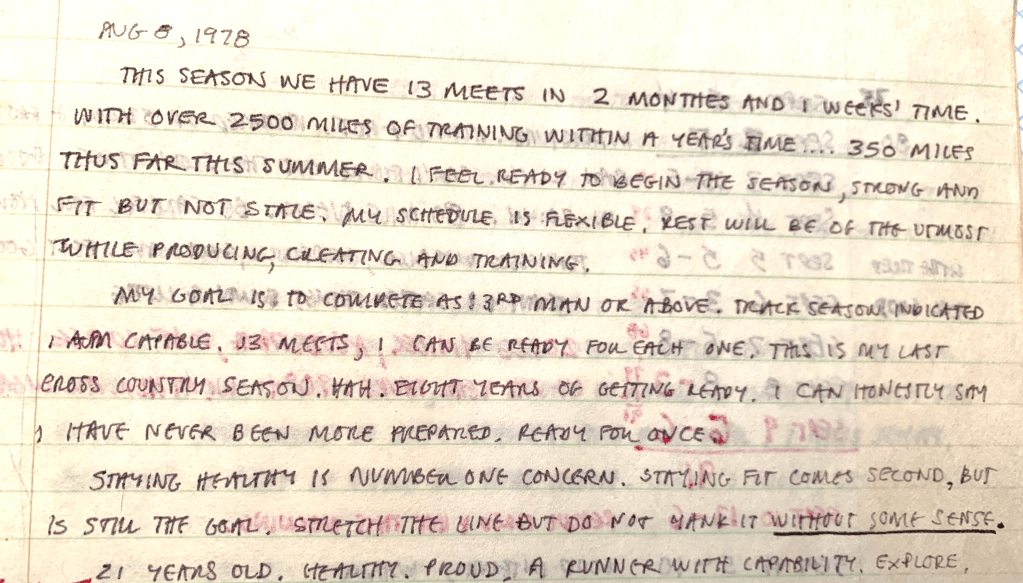 AUG 8, 1978
THIS SEASON WE HAVE 13 MEETS IN 2 MONTHES AND 1 WEEKS' TIME.
WITH OVER 2500 MILES OF TRAINING WITHIN A YEAR'S TIME.... 350 MILES
THUS FAR THIS SUMMER. I FEEL READY TO BEGIN THE SEASON, STRONG AND
FIT BUT NOT STALE. MY SCHEDULE IS FLEXIBLE. REST WILL BE OF THE UTMOST
WHILE PRODUCING, CREATING AND TRAINING.
MY GOAL IS TO COMPETE AS 3RD MAN OR ABOVE. TRACK SEASON INDICATED
I AM CAPABLE. 13 MEETS, I CAN BE READY FOR EACH ONE. THIS IS MY LAST
CROSS COUNTRY SEASON. HAH. EIGHT YEARS OF GETTING READY. I CAN HONESTLY SAY
I HAVE NEVER BEEN MORE PREPARED. READY FOR ONCE.
STAYING HEALTHY IS NUMBER ONE CONCERN. STAYING FIT COMES SECOND, BUT
IS STILL THE GOAL. STRETCH THE LINE BUT DO NOT YANK IT WITHOUT SOME SENSE.
21 YEARS OLD. HEALTHY. PROUD. A RUNNER WITH CAPABILITY. EXPLORE.